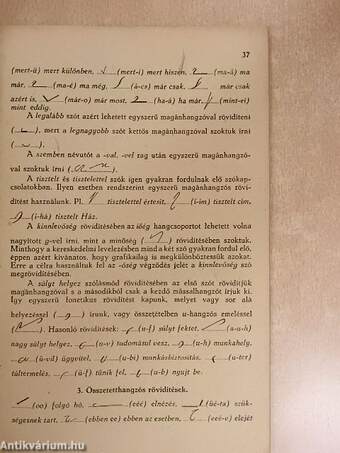 37
(mert-ü) mert különben, (mert-i) mert hiszen, (ma-á) ma
már, (ma-é) ma még, (á-cs) már csak, már csak
azért is, (már-o) már most, (ha-á) ha már, (mint-ei)
mint eddig.
A legalább szót azért lehetett egyszerű magánhangzóval rövidíteni
( ), mert a legnagyobb szót kettős magánhangzóval szoktuk írni
( ).
A szemben névutót a -val, -vel rag után egyszerű magánhangzó-
val szoktuk írni ( ).
A tisztelt és tisztelettel szók igen gyakran fordulnak elő szókap-
csolatokban. Ilyen esetben rendszerint egyszerű magánhangzós rövi-
dítést használunk. Pl. tisztelettel értesít, (i-im) tisztelt cím,
(i-há) tisztelt Ház.
A kinnlevőség rövidítésében az iőég hangcsoportot lehetett volna
nagyított g-vel írni, mint a minőség ( ) rövidítésében szoktuk.
Minthogy a kereskedelmi levelezésben mind a két szó gyakran fordul elő,
éppen azért kívánatos, hogy grafikailag is megkülönböztessük azokat.
Erre a célra használtuk fel az -őség végződés jelét a kinnlevőség szó
megrövidítésében.
A súlyt helyez szólásmód rövidítésében az első szót rövidítjük
magánhangzóval s a másodikból csak a kezdő mássalhangzót írjuk ki.
Így egyszerű fonetikus rövidítést kapunk, melyet vagy sor alá
helyezéssel ( ) írunk, vagy összetételben u-hangzós emeléssel
( ). Hasonló rövidítések: (u-f) súlyt fektet, (a-u-h)
nagy súlyt helyez, (o-v) tudomásul vesz, (u-h) munkahely,
(ü-vil) ügyvitel, (u-bi) munkásbiztosítás, (u-ter)
túltermelés, (ü-f) tűnik fel, (u-b) nyujt be.
3. Összetetthangzós rövidítések.
(oo) folyó hó, (eéé) elnézés, (üé-ta) szük-
ségesnek tart, (ebben ee) ebben az esetben, (eeé-v) elejét
antikvárium.hu